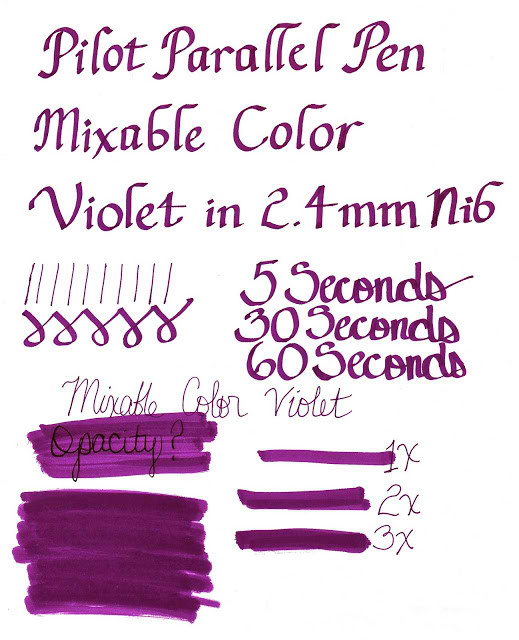 Pilot Parallel Pen
Mixable Color
Violet in 2.4mm Nib
5 Seconds
30 Seconds
60 Seconds
Mixable Color Violet
Opacity?
1x
2x
3x